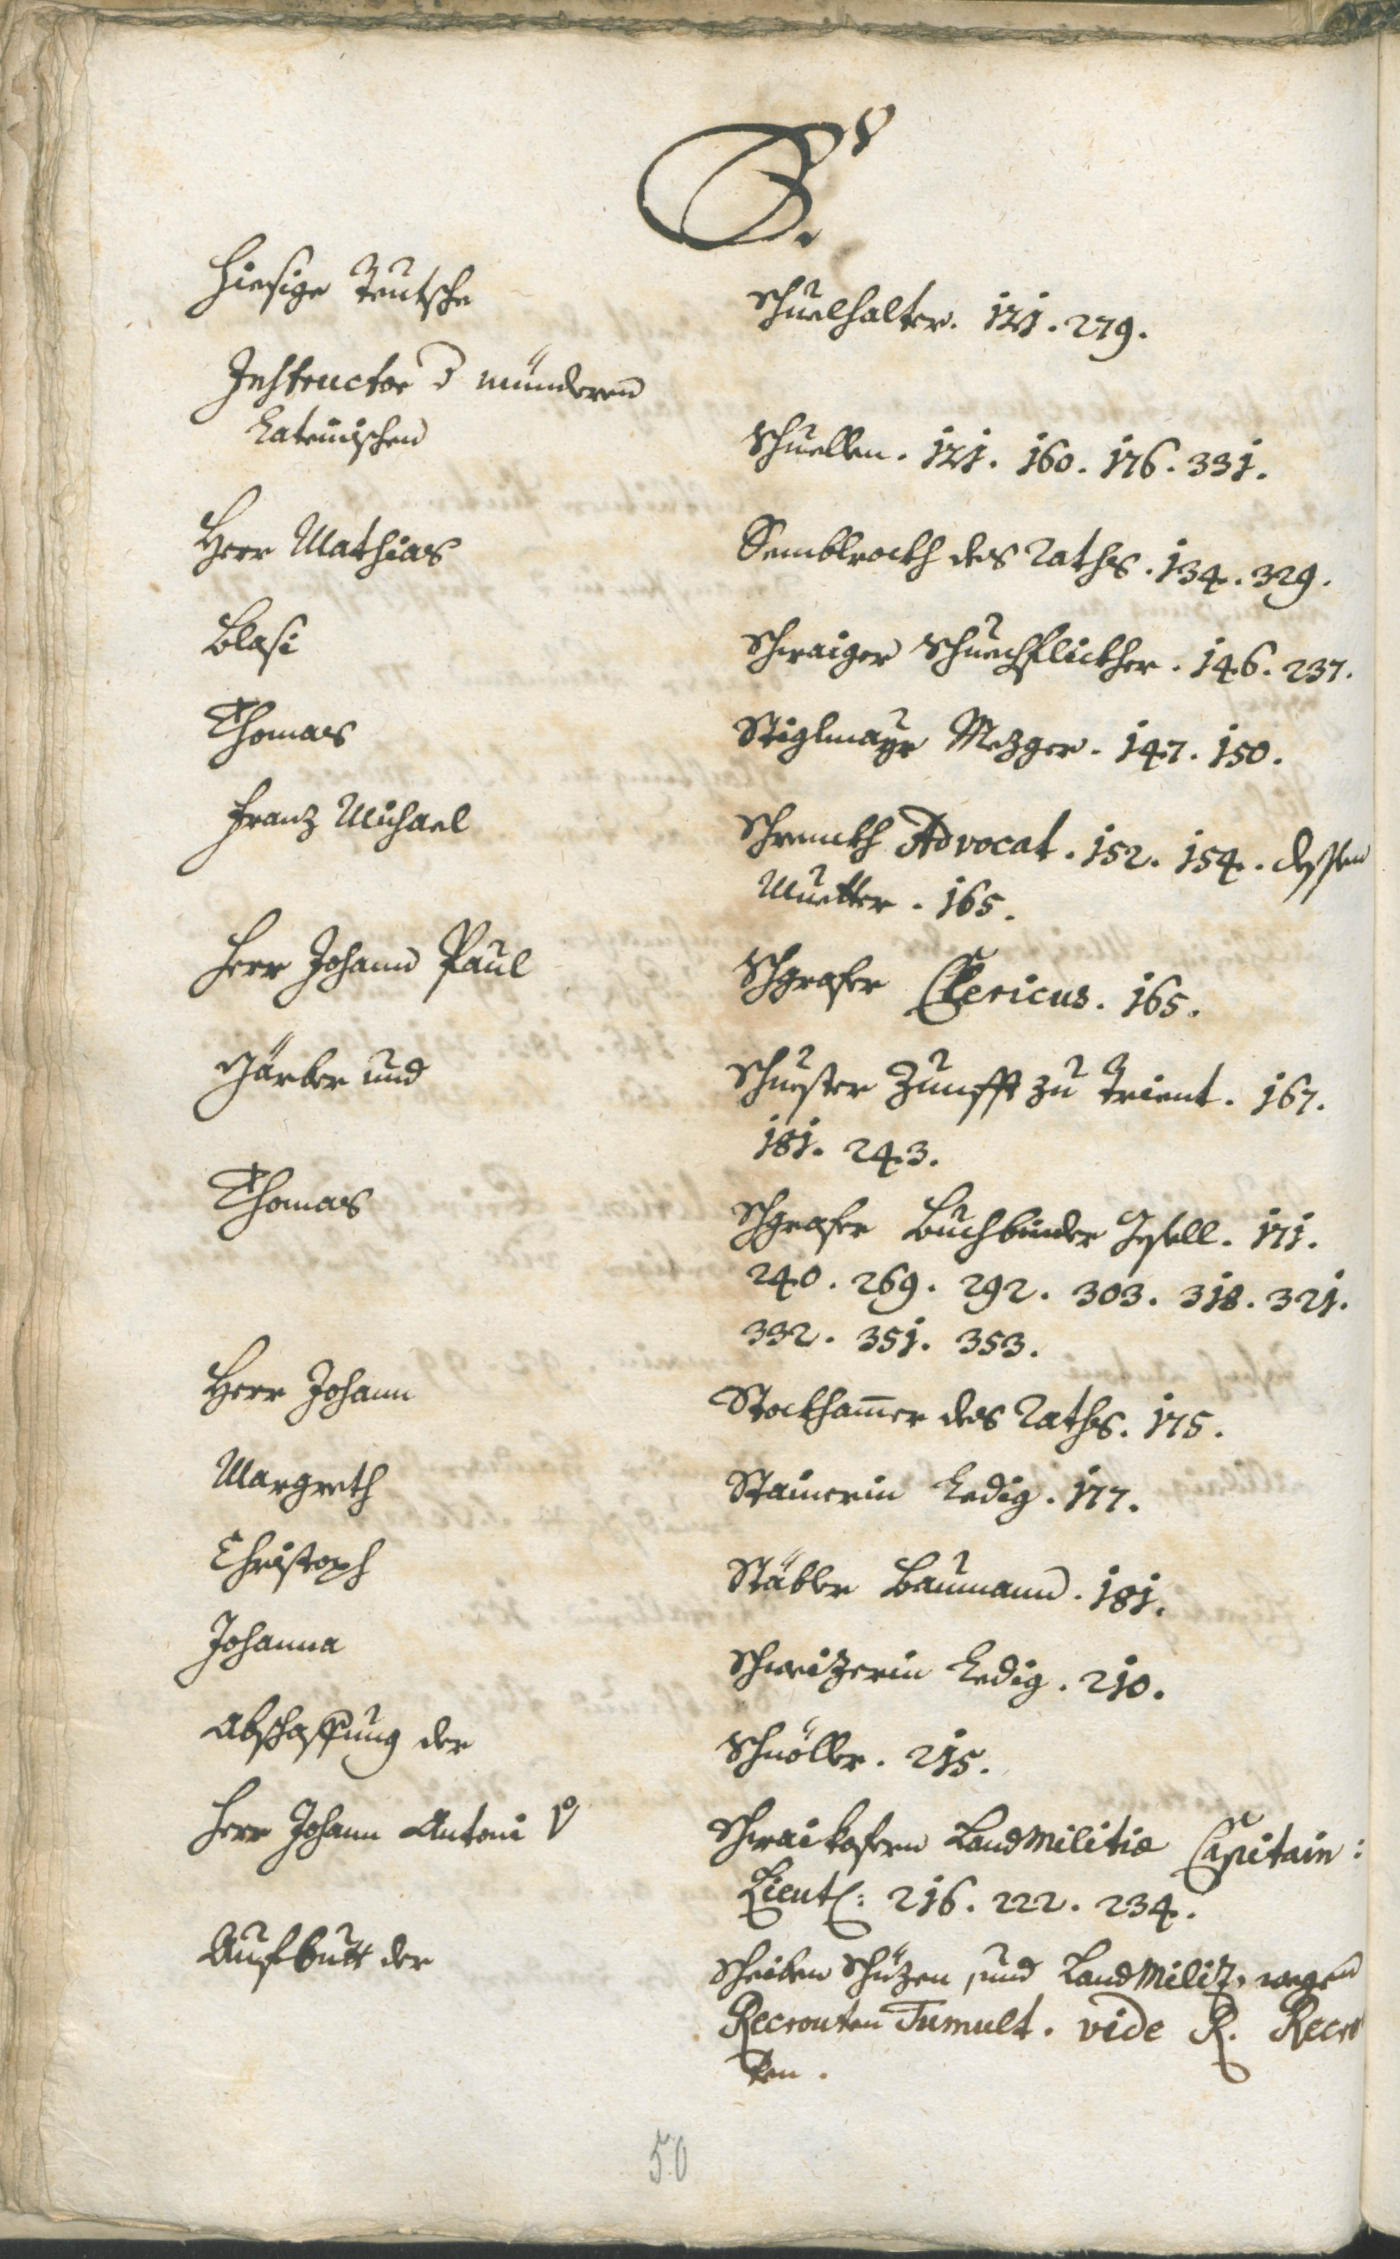 S.
Hiesige Teutsche Schuelhalter. 121. 279.
Instructor d münderen
Lateinischen Schuellen. 121. 160. 176. 331.
Herr Mathias Semblrockh des Raths. 134. 329.
Blasi Schwaiger Schuechflickher. 146. 237.
Thomas Stiglmayr Mezger. 147. 150.
Franz Michael Schrenckh Advocat. 152. 154. dessen
Muetter. 165.
Herr Johann Paul Schgraffer Clericus. 165.
Gärber und Schuester Zunfft zu Trient. 167.
181. 243.
Thomas Schgraffer Buchbinder Gsell. 171.
240. 269. 292. 303. 318. 321.
332. 351. 353.
Herr Johann Stockhamer des Raths. 175.
Margreth Stainerin Ledig. 177.
Christoph Stäbler Baumann. 181.
Johanna Schweitzerin Ledig. 210.
Abschaffung der Schnöller. 215.
Herr Johann Antoni v Schraikofern Landmilitia Capitain:
Lieut: 216. 222. 234.
Aufbutt der Scheiben Schüzen, und Landmiliz, wegen
Recrouten Tumult. vide R. Recro
ten.
50